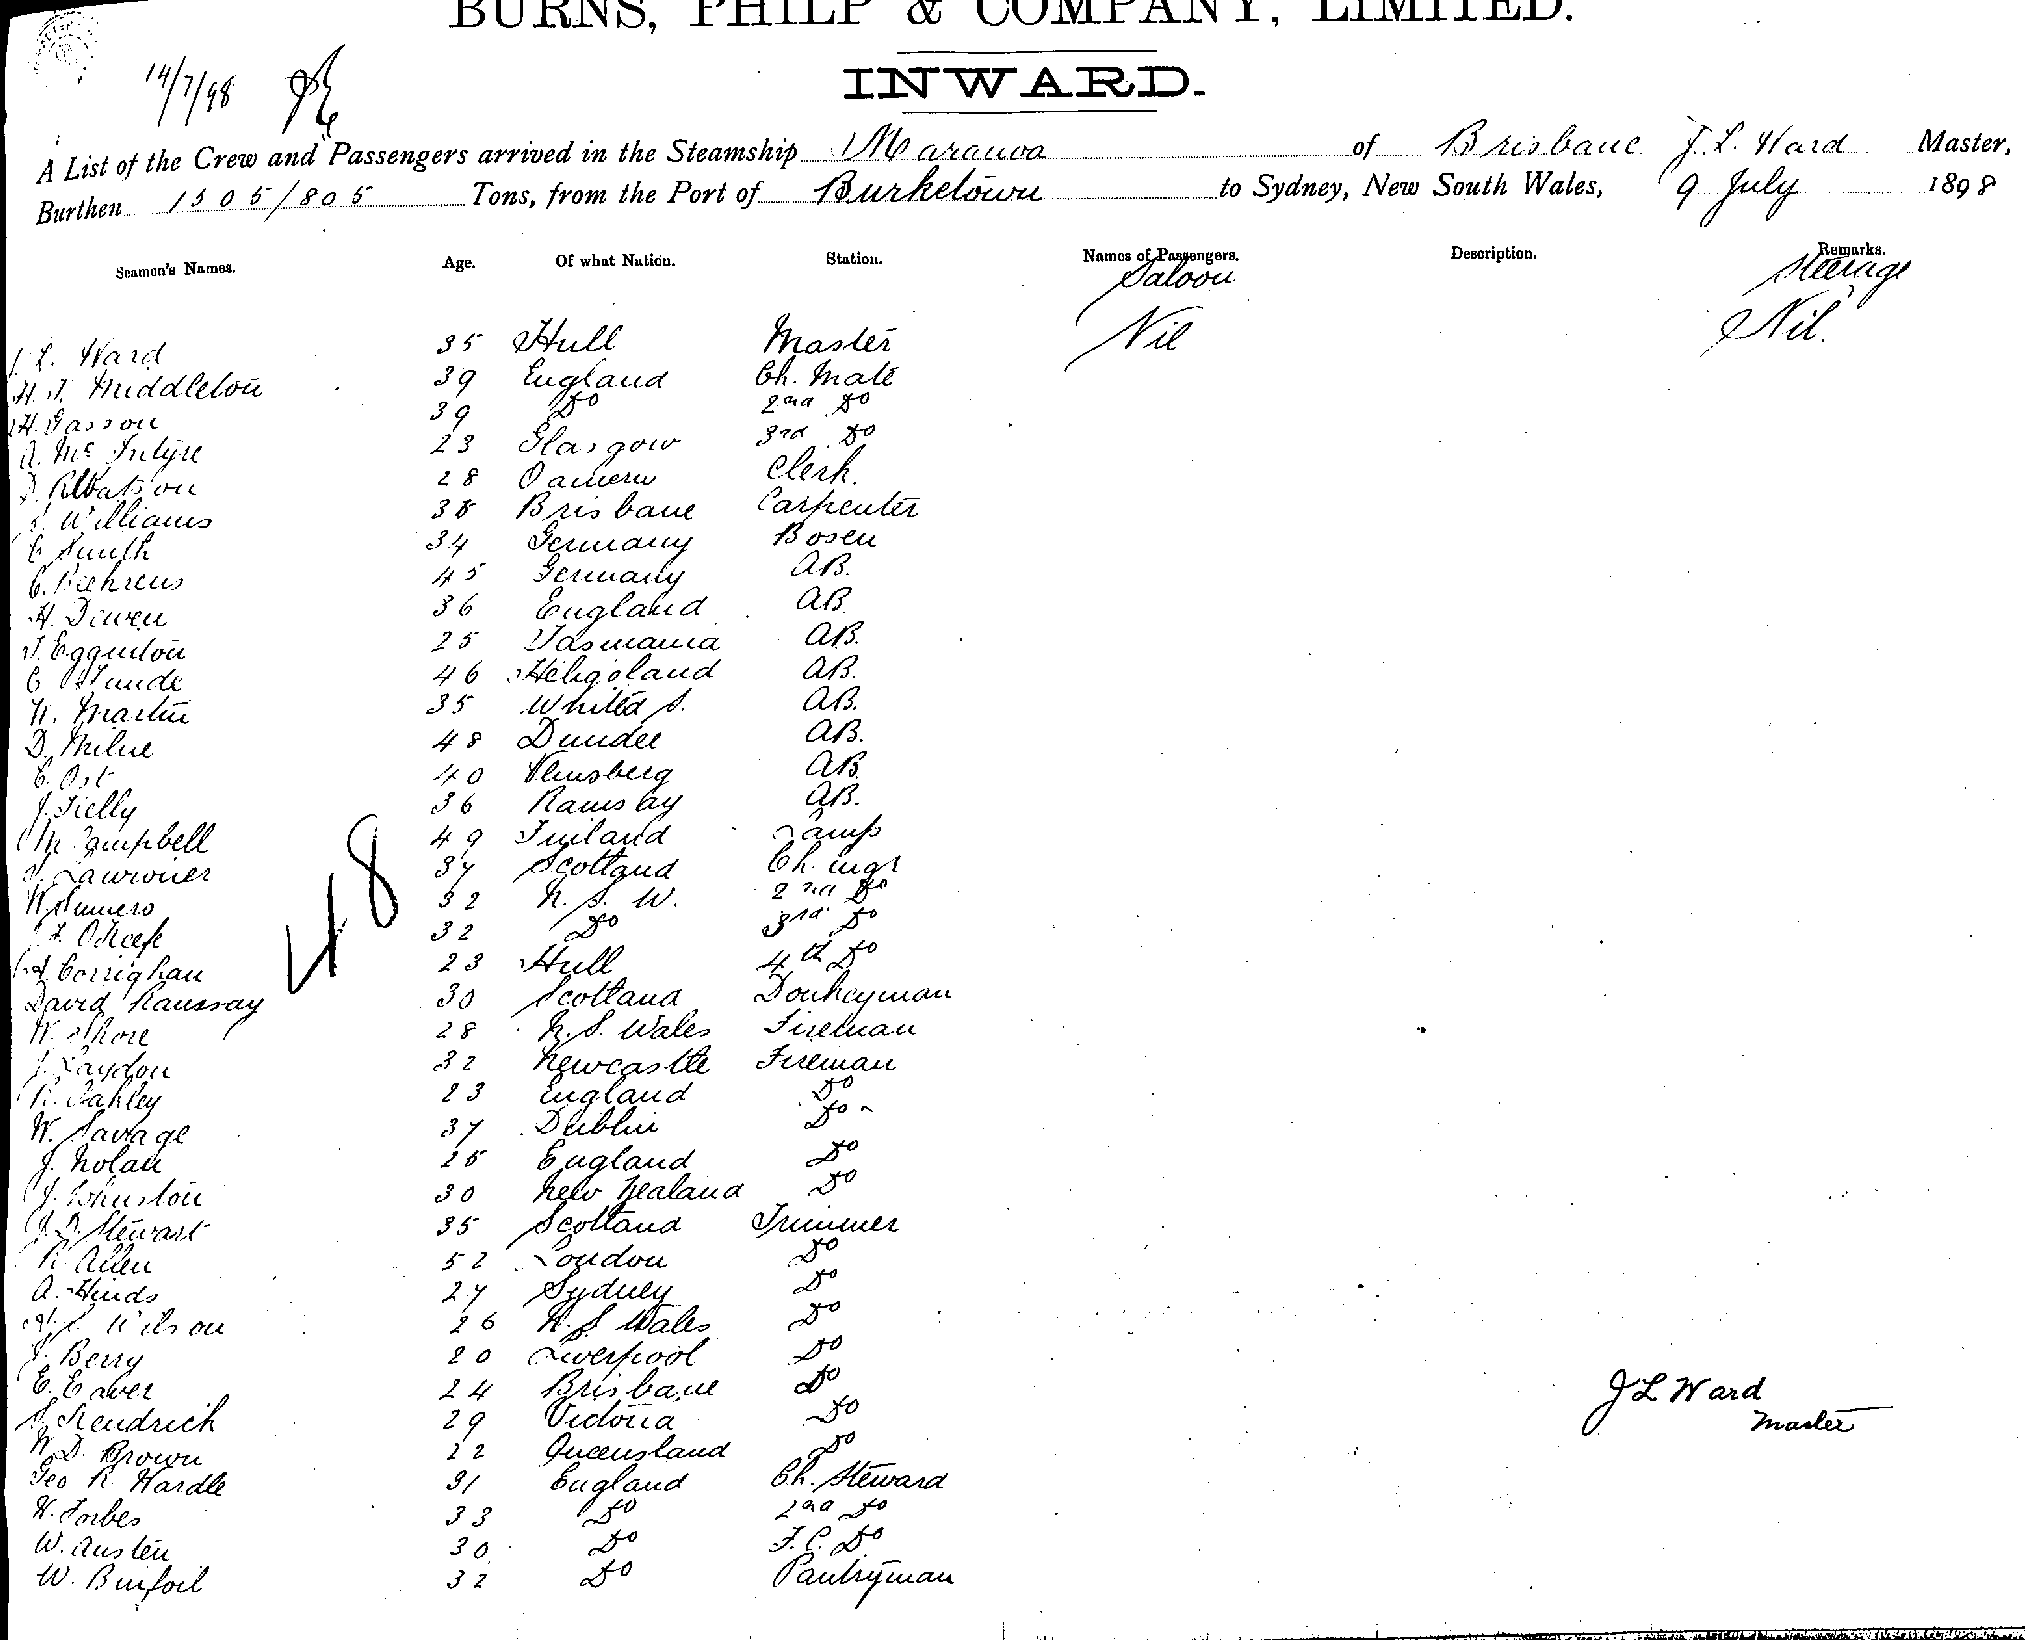 BURNS, PHILP & COMPANY, LIMITED.
INWARD.
14/7/98
A List of the Crew and Passengers arrived in the Steamship Maranoa of Brisbane J. L. Ward Master,
Burthen 1505/805 Tons, from the Port of Burketown to Sydney, New South Wales, 9 July 1898
Seamen's Names. Age. Of what Nation. Station. Names of Passengers. Description. Remarks.
Saloon Steerage
Nil Nil.
J. L. Ward 35 Hull Master
H. J. Middleton 39 England Ch. Mate
H. Gasson 39 Do 2nd Do
A. McIntyre 23 Glasgow 3rd Do
28 Clerk.
Williams 38 Brisbane Carpenter
C. Smith 34 Germany Bosen
C. Behrens 45 Germany AB.
H. Diwen 36 England AB
J. Egginton 25 Tasmania AB.
C 46 Heligoland AB.
W. Martin 35 United S. AB.
D. Milne 48 Dundee AB.
C. Ost 40 Flensberg AB
J. Tielly 36 Ramsay AB.
M Campbell 49 Finland Lamps
37 Scotland Ch. engr
32 N. S. W. 2nd Do
O'Keefe 32 Do 3rd Do
Corrighan 23 Hull 4th Do
David Ramsay 30 Scotland Donkeyman
W. Shore 28 N. S. Wales Fireman
J. Laydon 32 Newcastle Fireman
R. Oakley 23 England Do
W. Savage 37 Dublin Do
J. Nolan 25 England Do
J. Johnston 30 New Zealand Do
J. D. Stewart 35 Scotland Trimmer
R. Allen 52 London Do
A. Hinds 27 Sydney Do
Wilson 26 N. S Wales Do
J. Berry 20 Liverpool Do
E. Eaver 24 Brisbane Do
J. Kendrick 29 Victoria Do
W. D. Brown 22 Queensland Do
Geo R. Hardle 31 England Ch. Steward
W. Forbes 33 Do 2nd Do
W. Austen 30 Do F. C. Do
W. Binfoil 32 Do Pantryman
48
J L Ward
Master